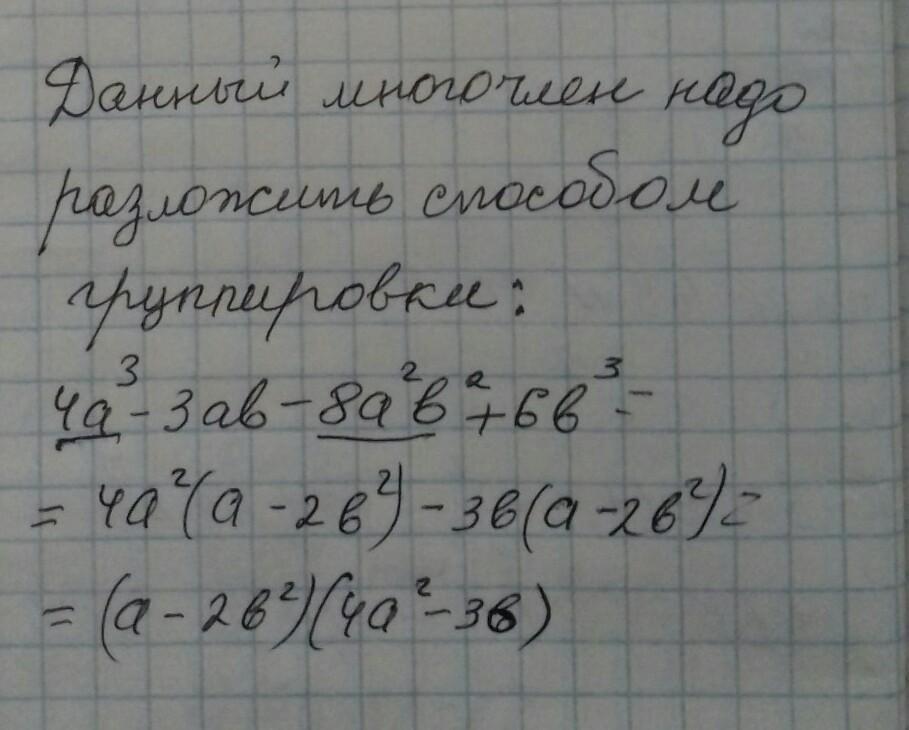 Данный многочлен надо
разложить способом
группировки:
4a³ - 3ав - 8a²в² + 6в³ =
= 4a²(a - 2в²) - 3в(a - 2в²) =
= (a - 2в²)(4a² - 3в)